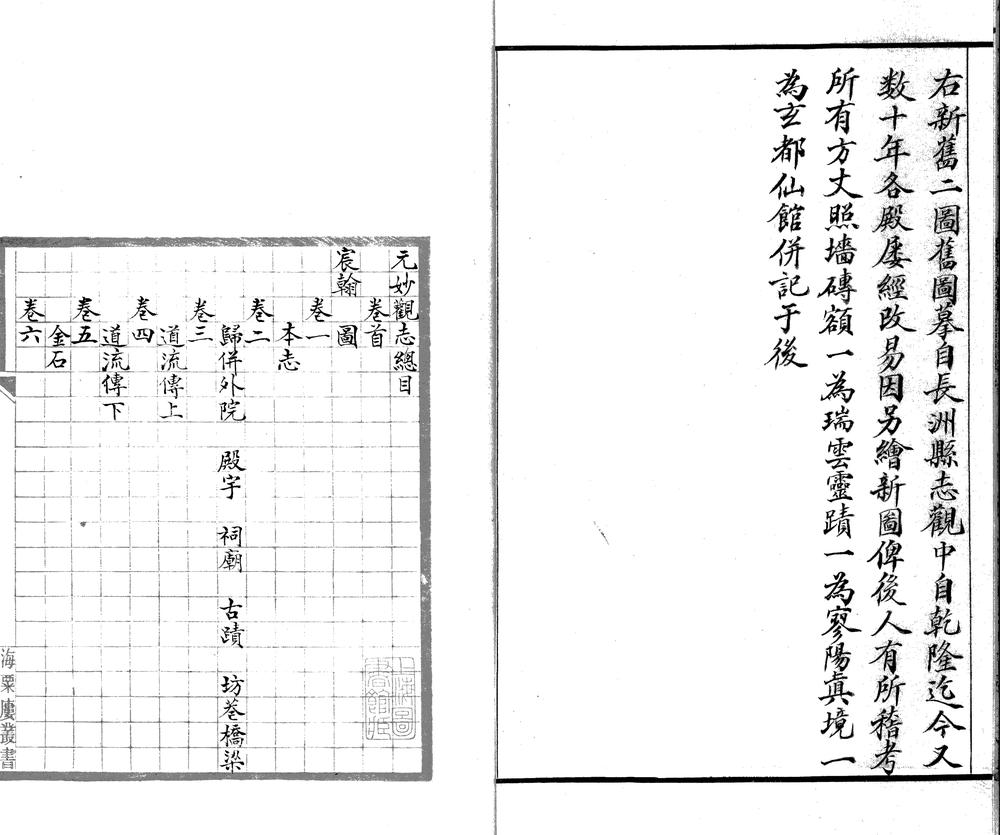 右新舊二圖舊圖摹自長洲縣志觀中自乾隆迄今又
数十年各殿屡經改易因另繪新圖俾後人有所稽考
所有方丈照墻磚額一為瑞雲靈蹟一為寥陽真境一
為玄都仙館併記于後
元妙觀志總目
卷首
圖
宸翰
卷一
本志
卷二
歸併外院 殿宇 祠廟 古蹟 坊巷橋梁
卷三
道流傳上
卷四
道流傳下
卷五
金石
卷六
海粟廔叢書
上海圖書館藏